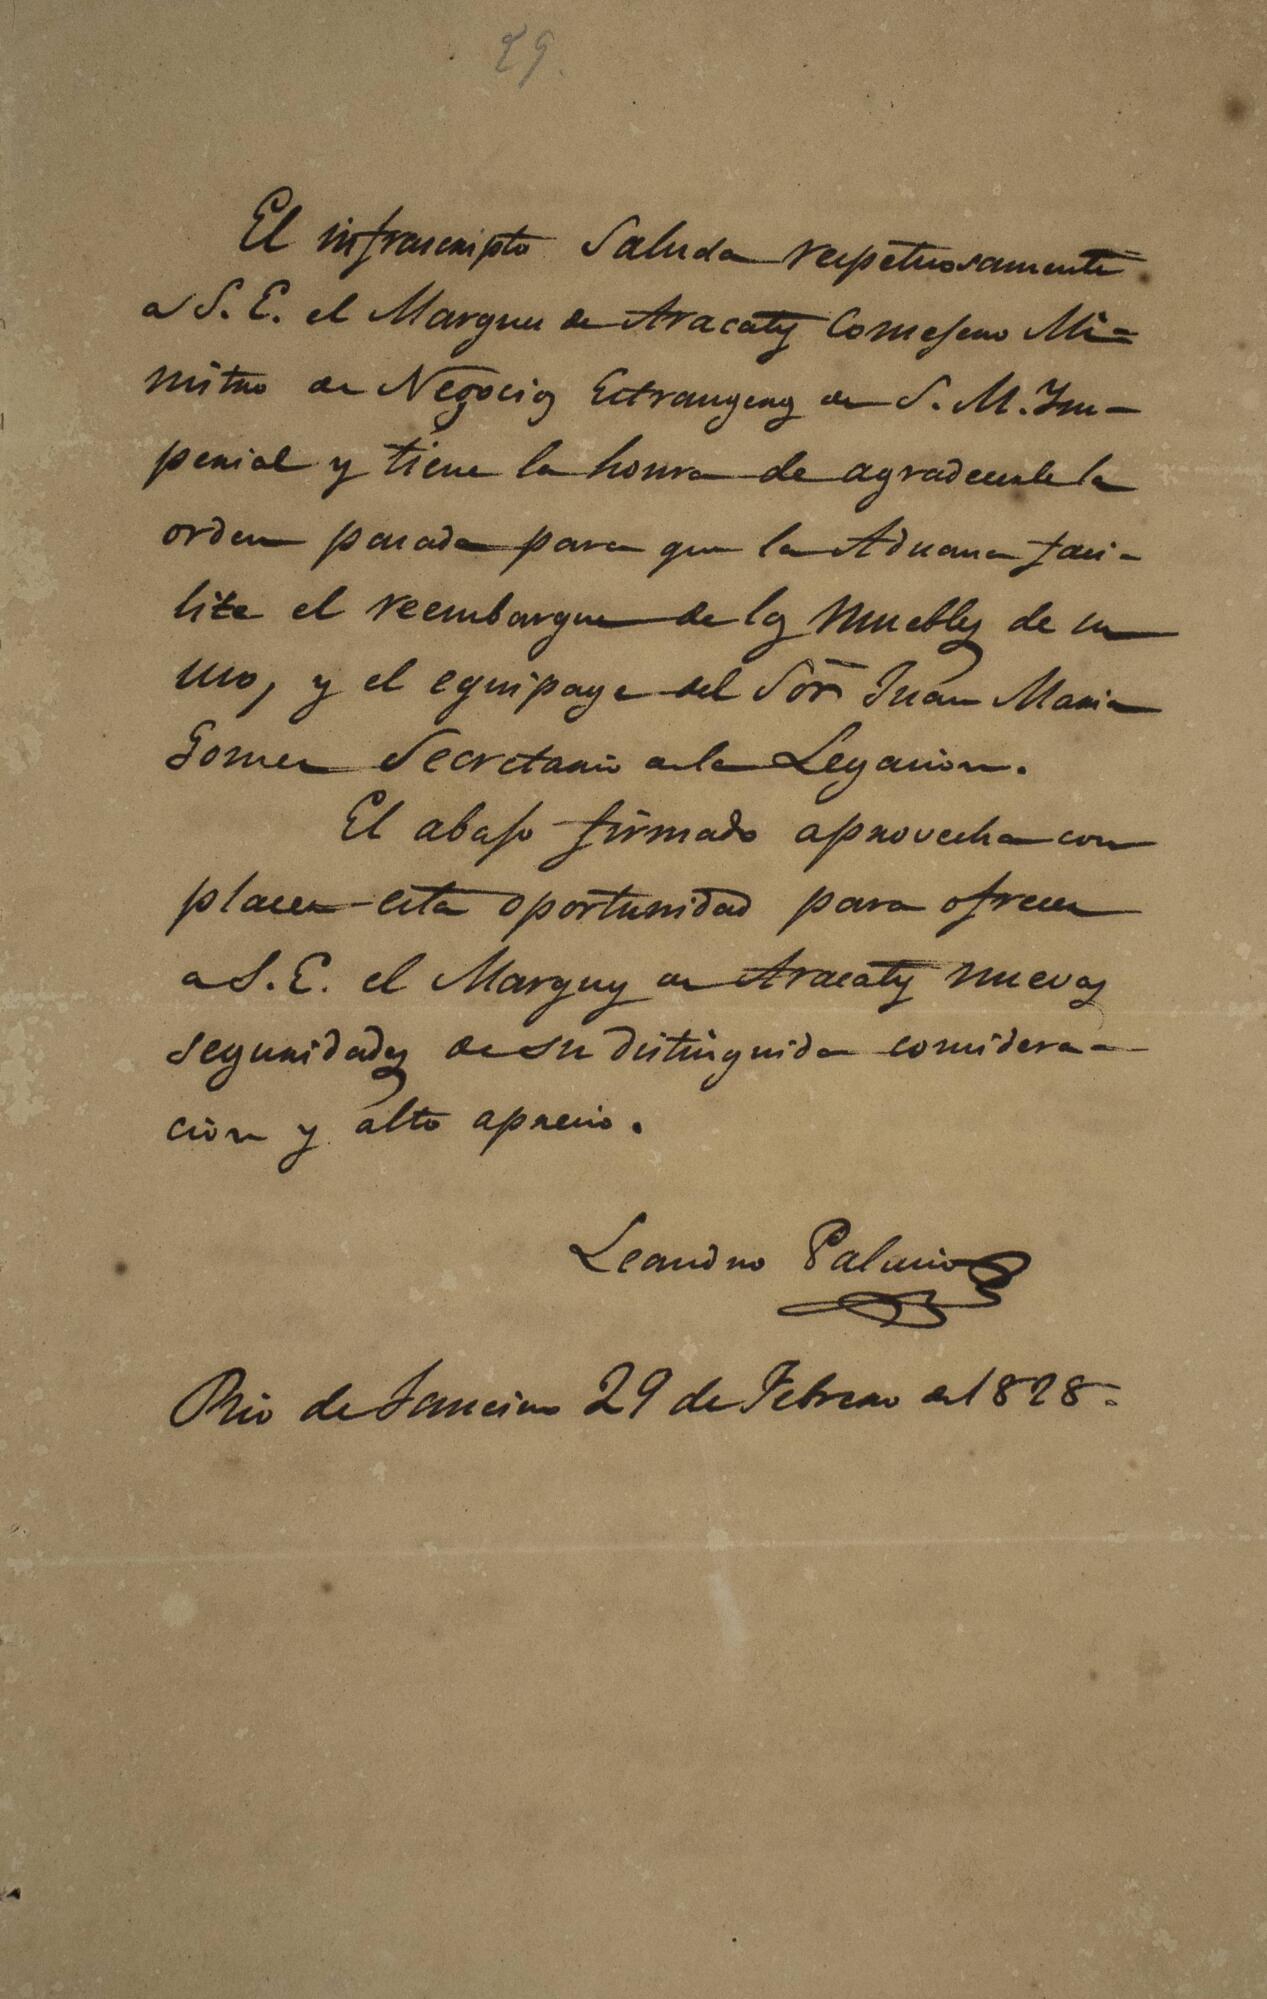 29.
El infrascripto Saluda respetuosamente
a S. E. el Marques de Aracaty Consejero Mi=
nistro de Negocios Extrangeros de S. M. Im-
perial y tiene la honra de agradecerle la
orden pasada para que la Aduana faci-
lite el reembarque de los Muebles de su
uso, y el equipage del Sõr Juan Maria
Gomez Secretario de la Legacion.
El abajo firmado aprovecha con
placer esta oportunidad para ofrecer
a S. E. el Marques de Aracaty nuevas
seguridades de su distinguida considera-
cion y alto aprecio.
Leandro Palacios
Rio de Janeiro 29 de Febrero de 1828.